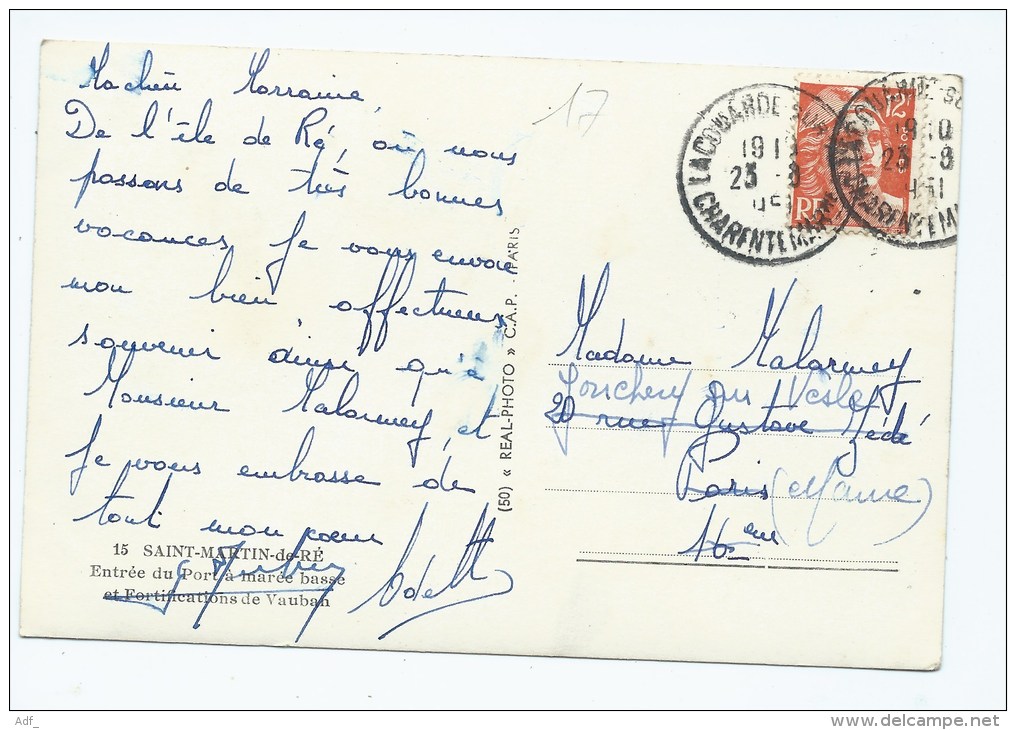 Ma chère Marraine,
De l'île de Ré, où nous
passons de très bonnes
vacances, je vous envoie
mon bien affectueux
souvenir ainsi qu'à
Monsieur Malarmey, et
je vous embrasse de
tout mon cœur
Odette
15 SAINT-MARTIN-de-RÉ
Entrée du Port à marée basse
et Fortifications de Vauban
(50) « REAL-PHOTO » C.A.P. - PARIS
17
LACOUARDE-SUR
19 1
23 -8
CHARENTE MME
12
RF
LA COUARDE-SU
19 10
23 -8
1951
CHARENTE M
Madame Malarmey
Jonchery sur Vesle
20 rue Gustave Zédé
Paris (Marne)
16ème
Adf_
www.delcampe.net